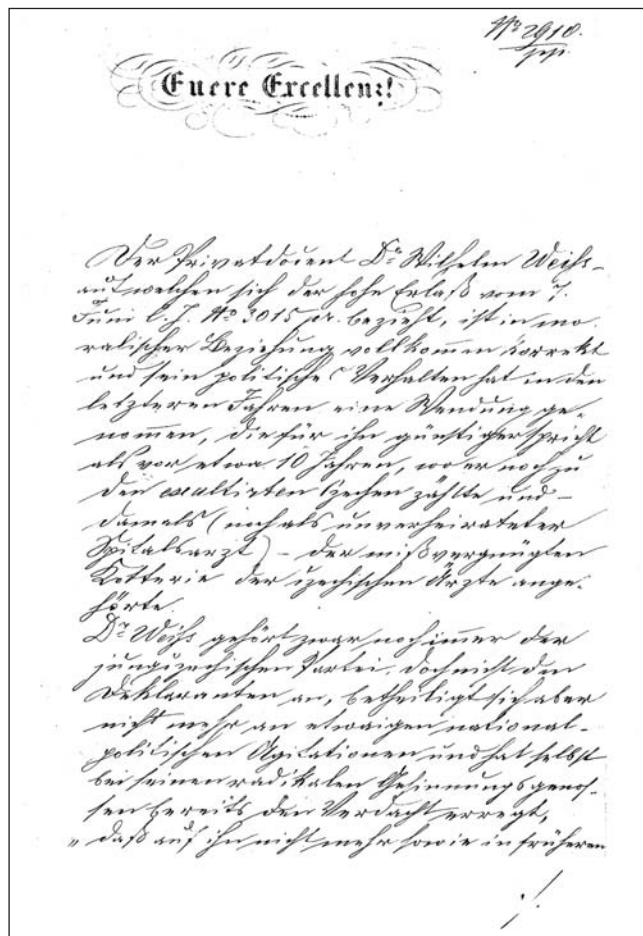 No 2910.
pp.
Euere Excellenz!
Der Privatdocent Dr. Wilhelm Weiss –
auf welchen sich der hohe Erlaß vom 7.
Juni l. J. No 3015 pr. bezieht, ist in mo-
ralischer Beziehung vollkommen korrekt
und sein politisches Verhalten hat in den
letzteren Jahren eine Wendung ge-
nommen, die für ihn günstiger spricht
als vor etwa 10 Jahren, wo er noch zu
den exaltirten Czechen zählte und –
damals (noch als unverheirateter
Spitalsarzt) – der mißvergnügten
Kotterie der czechischen Ärzte ange-
hörte.
Dr. Weiss gehört zwar noch immer der
jungczechischen Partei, doch nicht den
Deklaranten an, betheiligt sich aber
nicht mehr an etwaigen national-
politischen Agitationen und hat selbst
bei seinen radikalen Gesinnungsgenos-
sen bereits den Verdacht erregt,
„daß auf ihn nicht mehr sowie in früheren
./.